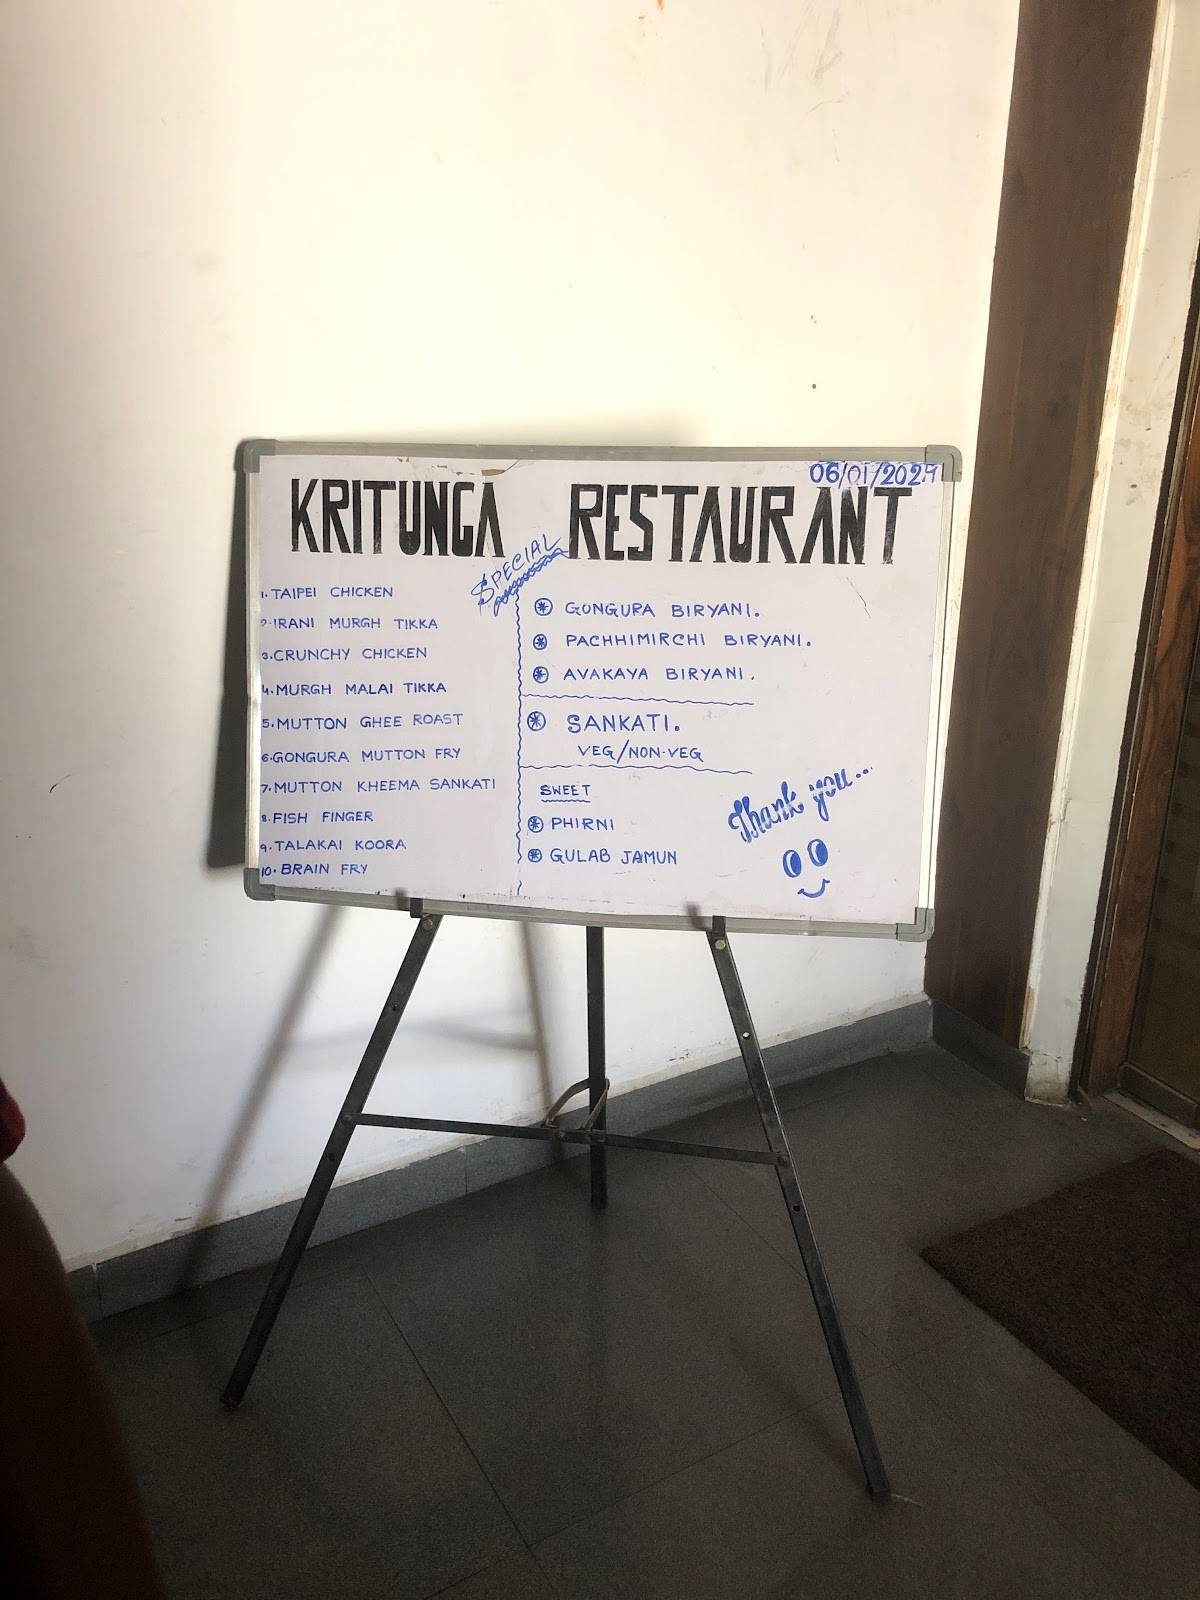 06/01/2024
KRITUNGA RESTAURANT
SPECIAL
1. TAIPEI CHICKEN
2. IRANI MURGH TIKKA
3. CRUNCHY CHICKEN
4. MURGH MALAI TIKKA
5. MUTTON GHEE ROAST
6. GONGURA MUTTON FRY
7. MUTTON KHEEMA SANKATI
8. FISH FINGER
9. TALAKAI KOORA
10. BRAIN FRY
GONGURA BIRYANI.
PACHHIMIRCHI BIRYANI.
AVAKAYA BIRYANI.
SANKATI.
VEG/NON-VEG
SWEET
PHIRNI
GULAB JAMUN
Thank you...